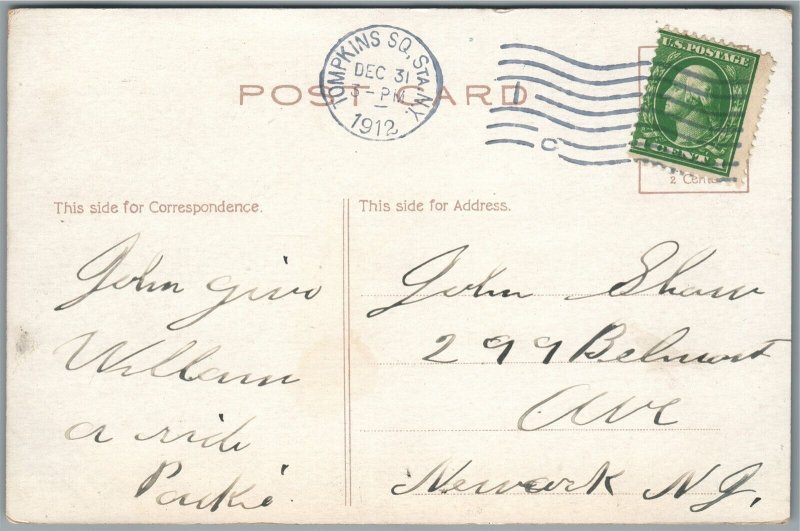 TOMPKINS SQ. STA. N.Y.
DEC 31
3-PM
1912
U.S. POSTAGE
1 CENT 1
POST CARD
2 Cents
This side for Correspondence.
This side for Address.
John give
William
a ride
John Shaw
299 Belmont
Ave
Newark N.J.